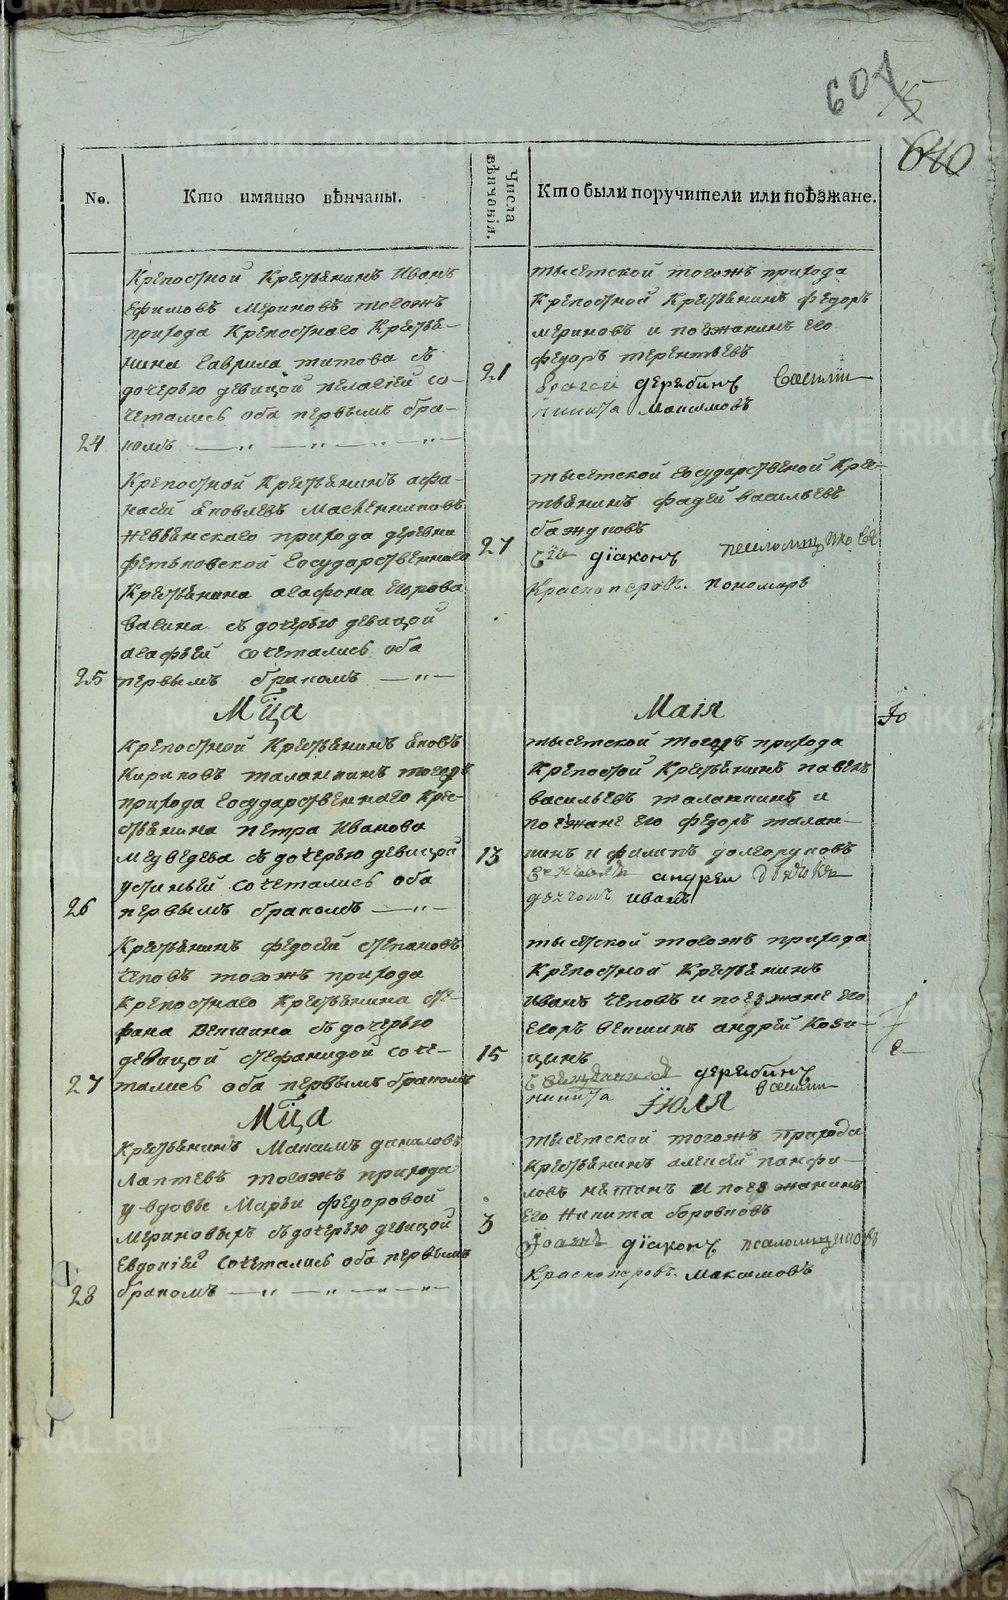 604
15
640
No.
Кто имянно вѣнчаны.
Числа вѣнчанія.
Кто были поручители или поѣзжане.
Крепостной Крестьянинъ Иванъ
Ефимовъ Мериновъ тогожъ
прихода Крепостнаго Крестья-
нина Гаврила титова съ
дочерью девицой пелагіей со-
четались оба первымъ бра-
24
комъ
21
тысетской тогожъ прихода
Крепостной Крестьянинъ федоръ
мериновъ и поезжанинъ его
федоръ терентьевъ
дерябинъ
никита Максимовъ
Крепостной Крестьянинъ афа-
насей яковлевъ Масленниковъ
невьянскаго прихода деревни
фетьковской Государственнаго
Крестьянина агафона Егорова
съ дочерью девицой
агафьей сочетались оба
25
первымъ бракомъ
27
тысетской Государственой Крес-
тьянинъ фадей васильевъ
бажуковъ
діаконъ
Красноперовъ. пономарь
Мца
Маія
Крепостной Крестьянинъ яковъ
Кириковъ таланкинъ тогожъ
прихода Государственнаго Крес-
тьянина петра Иванова
Медведева съ дочерью девицой
устиньей сочетались оба
26
первымъ бракомъ
13
тысетской тогожъ прихода
Крепостой Крестьянинъ павелъ
васильевъ таланкинъ и
поезжане его федоръ талан-
кинъ и филипъ долгоруковъ
андреи
иванъ
Крестьянинъ федосей степановъ
чеповъ тогожъ прихода
Крепостнаго Крестьянина сте-
фана Векшина съ дочерью
девицой стефанидой соче-
27
тались оба первымъ бракомъ
15
тысетской тогожъ прихода
Крепостной Крестьянинъ
иванъ чеповъ и поезжане его
егоръ векшинъ андрей кози-
цынъ
дерябинъ
никита
Мца
Іюля
Крестьянинъ Максимъ даниловъ
Лаптевъ тогожъ прихода
у вдовы Марьи федоровой
Мериновыхъ съ дочерью девицой
Евдокіей сочетались оба первымъ
28
бракомъ
3
тысетской тогожъ прихода
Крестьянинъ алексей панфи-
ловъ и поезжанинъ
его Никита боровковъ
Іоаннъ діаконъ
Красноперовъ. Максимовъ
METRIKI.GASO-URAL.RU